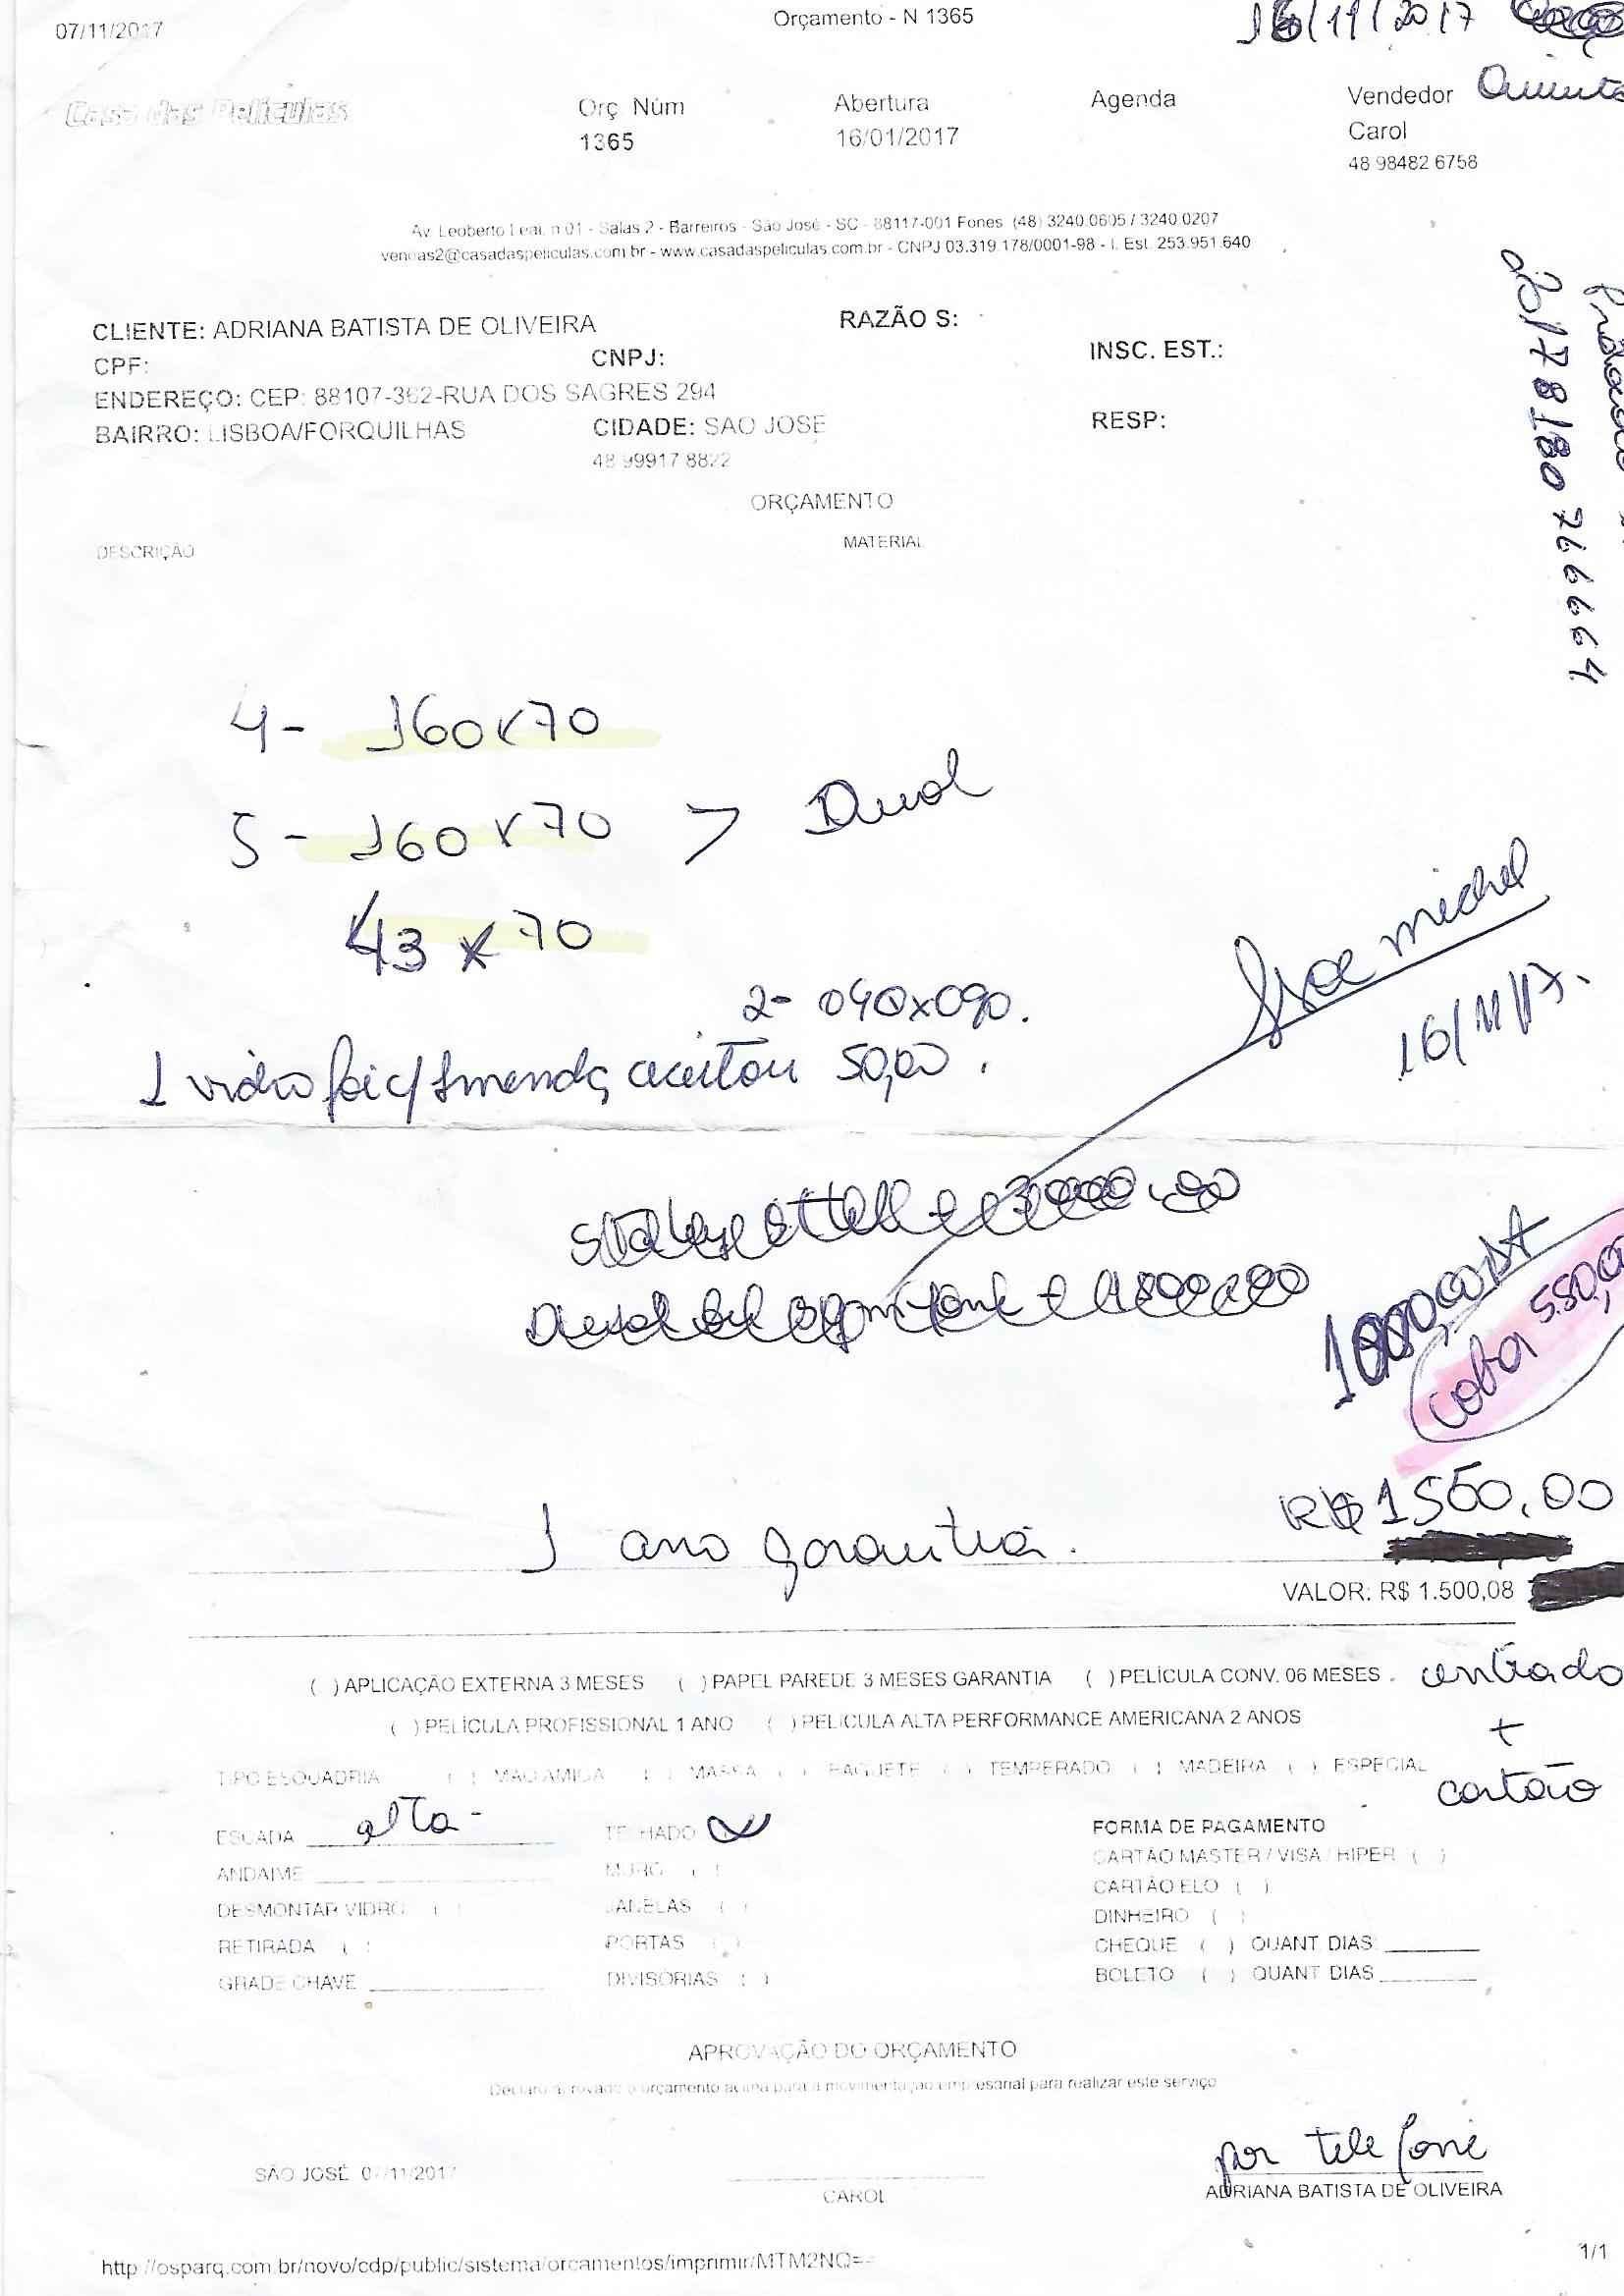 07/11/2017 Orçamento - N 1365 16/11/2017
Casa das Películas Orç Núm Abertura Agenda Vendedor
1365 16/01/2017 Carol
48 98482 6758
Av. Leoberto Leal, n 01 - Salas 2 - Barreiros - São José - SC - 88117-001 Fones (48) 3240.0605 / 3240.0207
vendas2@casadaspeliculas.com.br - www.casadaspeliculas.com.br - CNPJ 03.319.178/0001-98 - I. Est. 253.951.640
CLIENTE: ADRIANA BATISTA DE OLIVEIRA RAZÃO S:
CPF: CNPJ: INSC. EST.:
ENDEREÇO: CEP: 88107-362-RUA DOS SAGRES 294
BAIRRO: LISBOA/FORQUILHAS CIDADE: SAO JOSE RESP:
48 99917 8822
ORÇAMENTO
DESCRIÇÃO MATERIAL
4 - 160x70
5 - 160x70 > Dual
43 x 70
2- 040x090.
1 vidro foi c/ emenda, aceitou 50,00.
michel
16/11/17.
cobra 550,0
R$ 1550,00
1 ano garantia.
VALOR: R$ 1.500,08
( ) APLICAÇÃO EXTERNA 3 MESES ( ) PAPEL PAREDE 3 MESES GARANTIA ( ) PELÍCULA CONV. 06 MESES . entrado
( ) PELÍCULA PROFISSIONAL 1 ANO ( ) PELICULA ALTA PERFORMANCE AMERICANA 2 ANOS +
TIPO ESQUADRIA ( ) MAO AMIGA ( ) MASSA ( ) BAGUETE ( ) TEMPERADO ( ) MADEIRA ( ) ESPECIAL
cartão
ESCADA alta - TELHADO FORMA DE PAGAMENTO
ANDAIME MURO ( ) CARTÃO MASTER / VISA / HIPER ( )
DESMONTAR VIDRO ( ) JANELAS ( ) CARTÃO ELO ( )
DINHEIRO ( )
RETIRADA ( ) PORTAS ( ) CHEQUE ( ) QUANT DIAS
GRADE CHAVE DIVISÓRIAS ( ) BOLETO ( ) QUANT DIAS
APROVAÇÃO DO ORÇAMENTO
Declaro aprovado o orçamento acima para a movimentação empresarial para realizar este serviço
por telefone
SÃO JOSÉ, 07/11/2017 CAROL ADRIANA BATISTA DE OLIVEIRA
http://osparq.com.br/novo/cdp/public/sistema/orcamentos/imprimir/MTM2NQ== 1/1